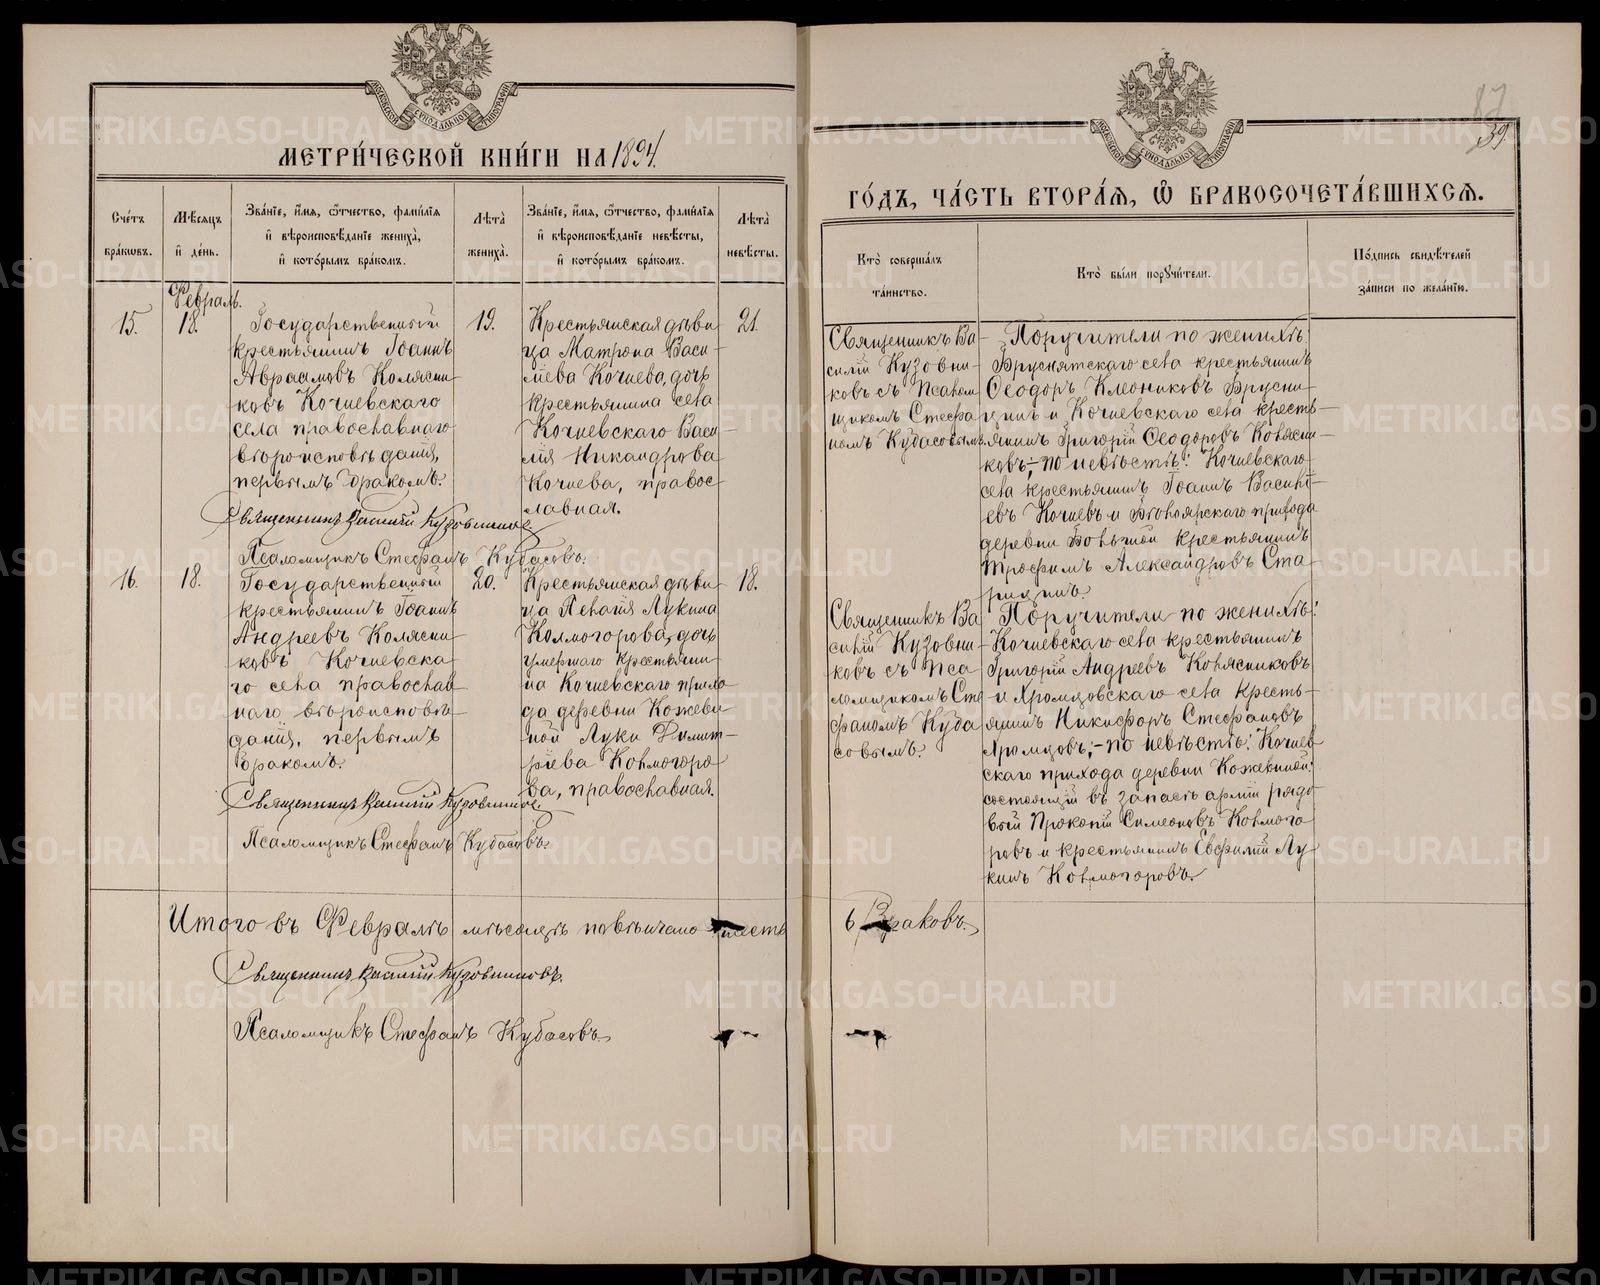 МЕТРИ́ЧЕСКОЙ КНИ́ГИ НА 1894.
Сче́тъ бра́ковъ.
Мѣ́сяцъ и҆ де́нь.
Зва́нїе, и҆́мя, ѻ҆́тчество, фами́лїя и҆ вѣроисповѣ́данїе жениха̀, и҆ кото́рымъ бра́комъ.
Лѣта̀ жениха̀.
Зва́нїе, и҆́мя, ѻ҆́тчество, фами́лїя и҆ вѣроисповѣ́данїе невѣ́сты, и҆ кото́рымъ бра́комъ.
Лѣта̀ невѣ́сты.
Февраль.
15.
18.
Государственный
крестьянинъ Іоаннъ
Авраамовъ Колясни
ковъ Кочневскаго
села православнаго
вѣроисповѣданія,
первымъ бракомъ.
19.
Крестьянская дѣви
ца Матрона Васи-
лїева Кочнева, дочь
крестьянина села
Кочневскаго Васи-
лїя Никандрова
Кочнева, правос
лавная.
21.
Священникъ Василїй Кузовниковъ
Псаломщикъ Стефанъ Кубасовъ.
16.
18.
Государственный
крестьянинъ Іоаннъ
Андреевъ Колясни
ковъ Кочневска
го села православ
наго вѣроисповѣ
данія, первымъ
бракомъ.
20.
Крестьянская дѣви
ца Пелагія Лукина
Колмогорова, дочь
умершаго крестьяни
на Кочневскаго прихо
да деревни Кожеви
ной Луки Димит-
рїева Колмогоро
ва, православная.
18.
Священникъ Василїй Кузовниковъ
Псаломщикъ Стефанъ Кубасовъ.
Итого въ Февралѣ мѣсяцѣ повѣнчано шесть
Священникъ Василїй Кузовниковъ.
Псаломщикъ Стефанъ Кубасовъ
39.
ГО́ДЪ, ЧА́СТЬ ВТОРА́Я, Ѽ БРАКОСОЧЕТА́ВШИХСЯ.
Кто̀ соверша́лъ та́инство.
Кто̀ бы́ли поручи́тели.
По́дпись свидѣ́телей за́писи по жела́нїю.
Священникъ Ва
силїй Кузовни-
ковъ съ Псалом
щикомъ Стефа
номъ Кубасовымъ
Поручители по женихѣ:
Бруснятскаго села крестьянинъ
Ѳеодоръ Клеониковъ Брусни
цинъ и Кочневскаго села кресть-
янинъ Григорїй Ѳеодоровъ Колясни-
ковъ;-по невѣстѣ: Кочневскаго
села крестьянинъ Іоаннъ Василї-
евъ Кочневъ и Бѣлоярскаго прихода
деревни Большой крестьянинъ
Трофимъ Александровъ Ста
рицинъ.
Священникъ Ва
силїй Кузовни-
ковъ съ Пса
ломщикомъ Сте
фаномъ Куба
совымъ.
Поручители по женихѣ:
Кочневскаго села крестьянинъ
Григорїй Андреевъ Колясниковъ
и Хромцовскаго села кресть-
янинъ Никифоръ Стефановъ
Хромцовъ;-по невѣстѣ: Кочнев
скаго прихода деревни Кожевиной:
состоящїй въ запасѣ армїи рядо
вый Прокопїй Симеоновъ Колмого
ровъ и крестьянинъ Евфимїй Лу
кинъ Колмогоровъ.
6 браковъ.